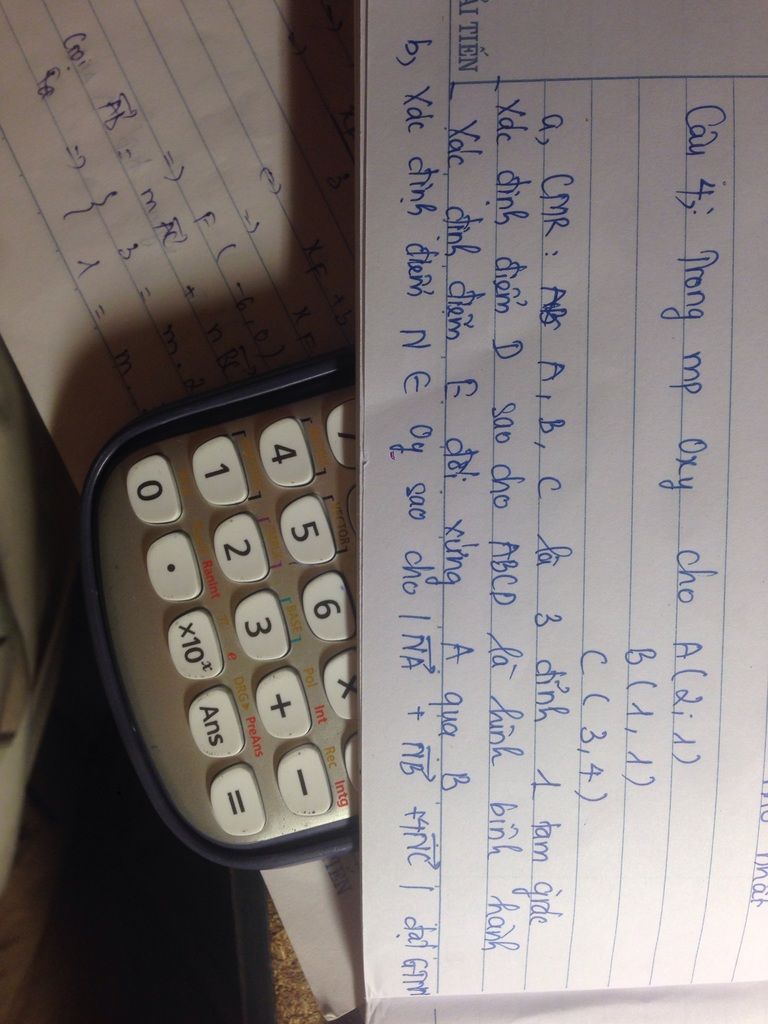 Câu 4: Trong mp Oxy cho A(2;1)
B(1,1)
C(3,4)
a, CMR: A, B, C là 3 đỉnh 1 tam giác
xác định điểm D sao cho ABCD là hình bình hành
- Xác định điểm E đối xứng A qua B
b, xác định điểm N ∈ Oy sao cho |NA + NB + 4NC| đạt GTNN
ẢI TIẾN
nhất
⇒ F(-6,0)
Gọi AB = mAC + n
⇒ { 3 = m.2
1 = m.
4 5 6 ×
1 2 3 + −
0 . ×10ˣ Ans =
VECTOR]
[BASE]
Pol Int Rec Intg
Ranint e DRG▸ PreAns